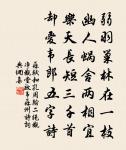 弱羽巢林在一枝
幽人蝸舍兩相宜
樂天長短三千首
卻愛韋郎五字詩
蘇軾和孔周翰二絕觀
淨觀堂效韋蘇州詩